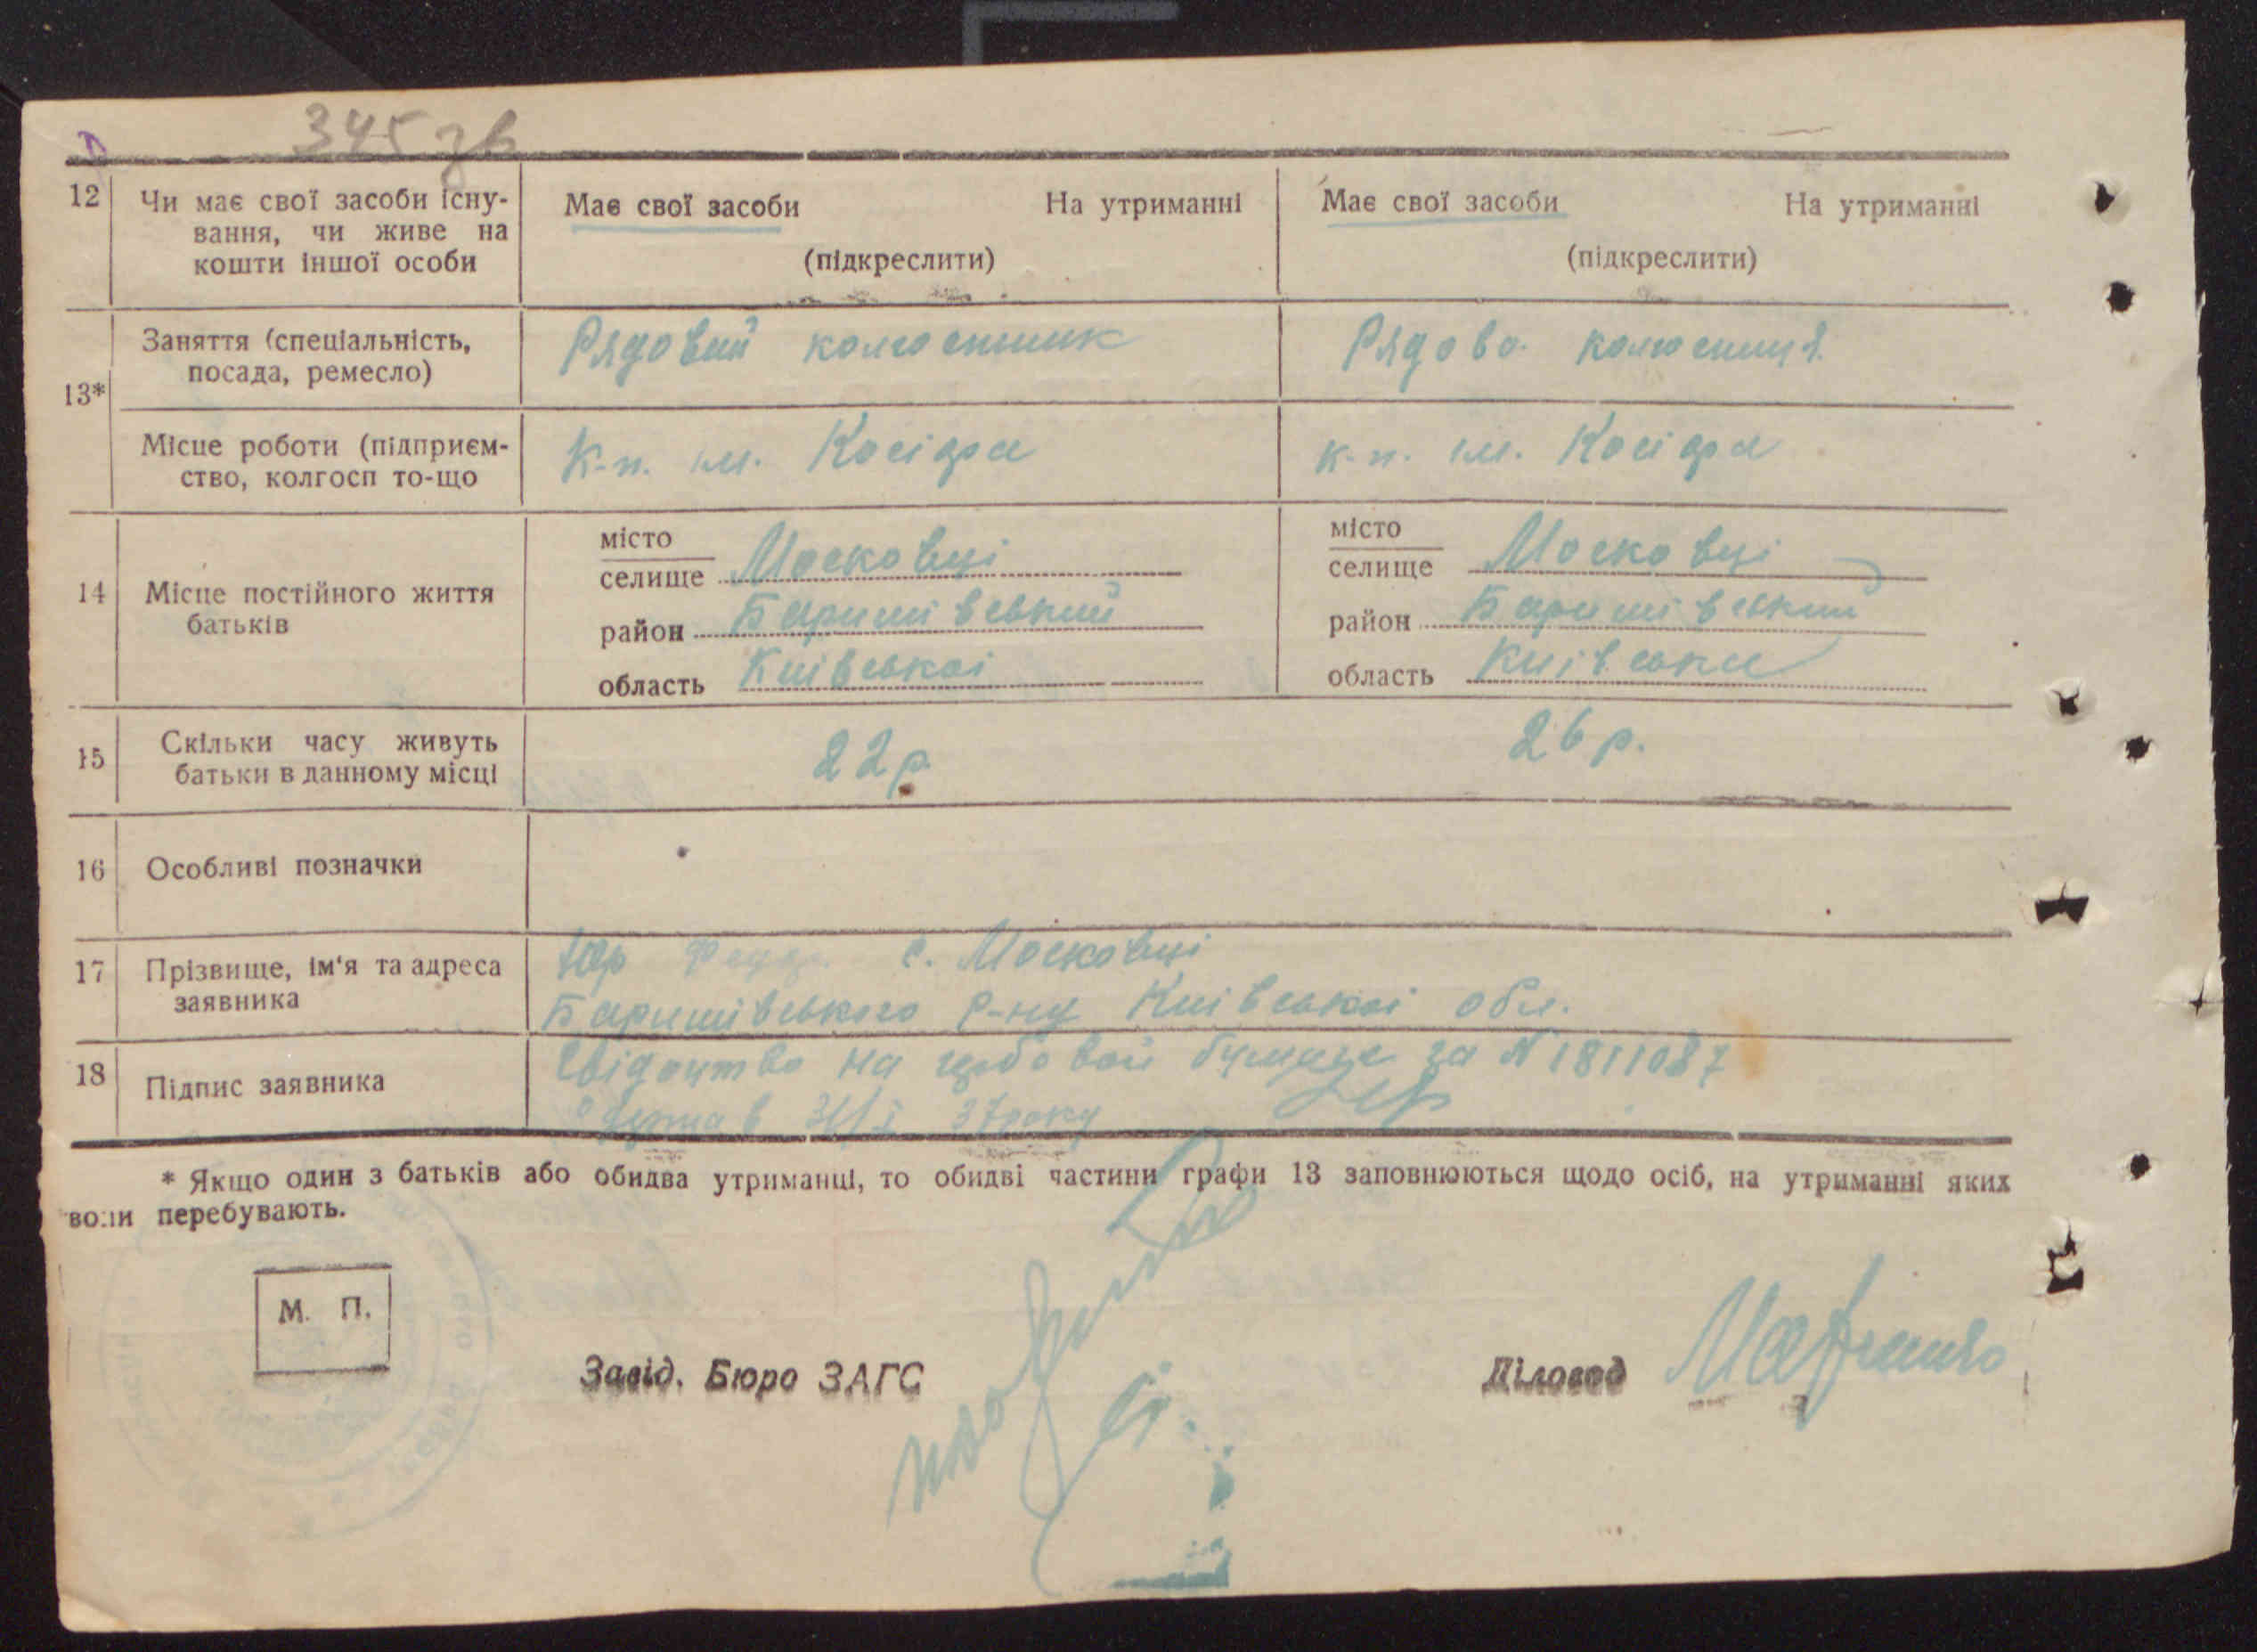 345 зв
12 Чи має свої засоби існу-
вання, чи живе на
кошти іншої особи
Має свої засоби На утриманні
(підкреслити)
Має свої засоби На утриманні
(підкреслити)
13*
Заняття (спеціальність,
посада, ремесло)
Рядовий колгоспник
Рядова колгоспниця
Місце роботи (підприєм-
ство, колгосп то-що
К-п. ім. Косіора
к-п. ім. Косіора
14 Місце постійного життя
батьків
місто
селище Московці
район Баришівський
область Київської
місто
селище Московці
район Баришівський
область Київська
15 Скільки часу живуть
батьки в данному місці
22 р.
26 р.
16 Особливі позначки
17 Прізвище, ім'я та адреса
заявника
с. Московці
Баришівського р-ну Київської обл.
18 Підпис заявника
Свідоцтво на гербовой бумазе за N 1811087
37 року
* Якщо один з батьків або обидва утриманці, то обидві частини графи 13 заповнюються щодо осіб, на утриманні яких
вони перебувають.
М. П.
Завід. Бюро ЗАГС
Діловод